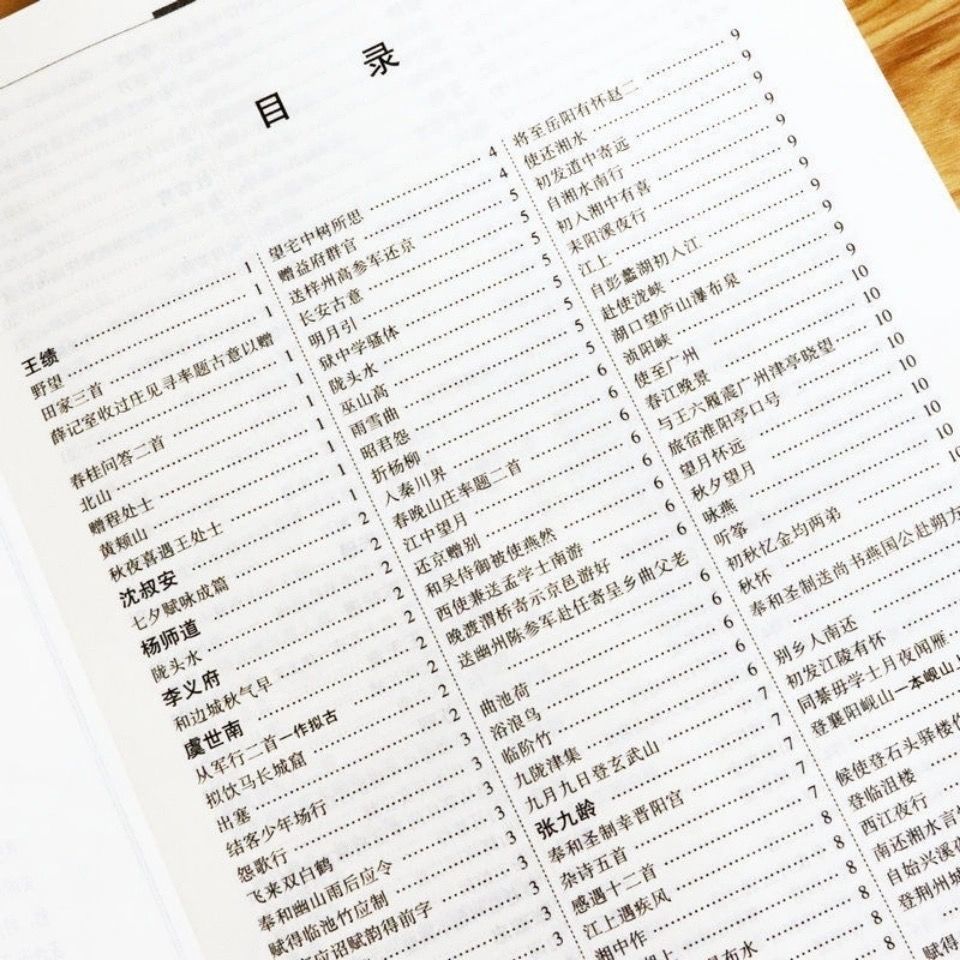 目 录
王绩 …… 1
野望 …… 1
田家三首 …… 1
薛记室收过庄见寻率题古意以赠
…… 1
春桂问答二首 …… 1
北山 …… 1
赠程处士 …… 1
黄颊山 …… 1
秋夜喜遇王处士 …… 1
沈叔安 …… 2
七夕赋咏成篇 …… 2
杨师道 …… 2
陇头水 …… 2
李义府 …… 2
和边城秋气早 …… 2
虞世南 …… 2
从军行二首一作拟古 …… 2
拟饮马长城窟 …… 2
出塞 …… 3
结客少年场行 …… 3
怨歌行 …… 3
飞来双白鹤 …… 3
奉和幽山雨后应令 …… 3
赋得临池竹应制 …… 3
应诏赋韵得前字
望宅中树所思 …… 4
赠益府群官 …… 4
送梓州高参军还京 …… 5
长安古意 …… 5
明月引 …… 5
狱中学骚体 …… 5
陇头水 …… 5
巫山高 …… 5
雨雪曲 …… 5
昭君怨 …… 5
折杨柳 …… 6
入秦川界 …… 6
春晚山庄率题二首 …… 6
江中望月 …… 6
还京赠别 …… 6
和吴侍御被使燕然 …… 6
西使兼送孟学士南游 …… 6
晚渡渭桥寄示京邑游好 …… 6
送幽州陈参军赴任寄呈乡曲父老
…… 6
曲池荷 …… 6
浴浪鸟 …… 6
临阶竹 …… 6
九陇津集 …… 7
九月九日登玄武山 …… 7
张九龄 …… 7
奉和圣制幸晋阳宫 …… 7
杂诗五首 …… 8
感遇十二首 …… 8
江上遇疾风 …… 8
湘中作 …… 8
布水
将至岳阳有怀赵二 …… 9
使还湘水 …… 9
初发道中寄远 …… 9
自湘水南行 …… 9
初入湘中有喜 …… 9
耒阳溪夜行 …… 9
江上 …… 9
自彭蠡湖初入江 …… 9
赴使泷峡 …… 9
湖口望庐山瀑布泉 …… 9
浈阳峡 …… 10
使至广州 …… 10
春江晚景 …… 10
与王六履震广州津亭晓望 …… 10
旅宿淮阳亭口号 …… 10
望月怀远 …… 10
秋夕望月 …… 10
咏燕 …… 10
听筝 …… 10
初秋忆金均两弟
秋怀
奉和圣制送尚书燕国公赴朔方
别乡人南还
初发江陵有怀
同綦毋学士月夜闻雁
登襄阳岘山一本岘山上
候使登石头驿楼作
登临沮楼
西江夜行
南还湘水言
自始兴溪夜
登荆州城
赋得